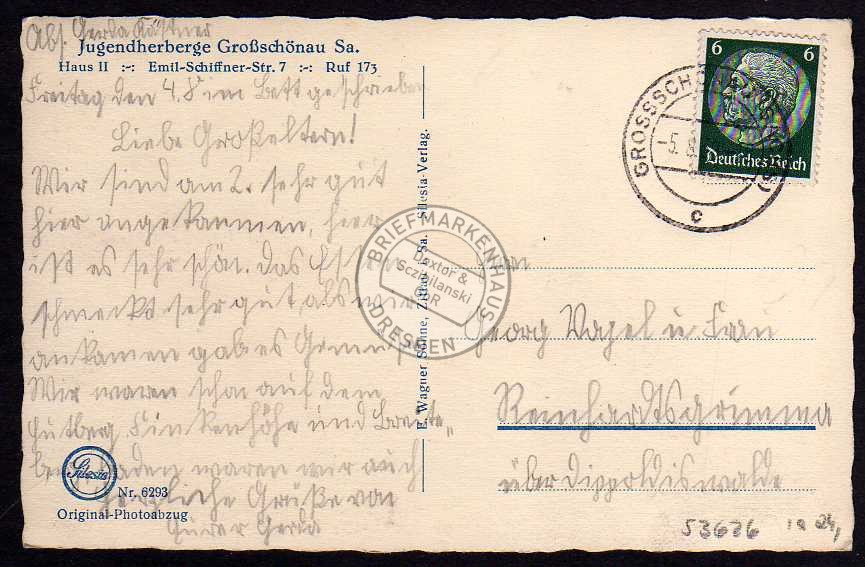 Abs. Gerda Kästner
Jugendherberge Großschönau Sa.
Haus II :-: Emil-Schiffner-Str. 7 :-: Ruf 173
Freitag den 4.8. im Bett geschrieben
Liebe Großeltern!
Wir sind am 2. sehr gut
hier angekammen, hier
ist es sehr schön. Das Essen
schmeckt sehr gut, als wir
ankamen gab es
Wir waren schon auf dem
Hutberg, Finkenhöhe und Breite„
baden waren wir auch
Herzliche Grüße von
Eurer Gerda
Silesia
Nr. 6293
Original-Photoabzug
E. Wagner Söhne, Zittau i. Sa. Silesia-Verlag.
6 6
Deutsches Reich
GROSSSCHÖNAU (SACHS)
-5. 8.
c
Georg Vogel u. Frau
Reinhardtsgrimma
über Dippoldiswalde
53626
BRIEFMARKENHAUS
Doxtor &
Sczibilanski
GbR
DRESDEN